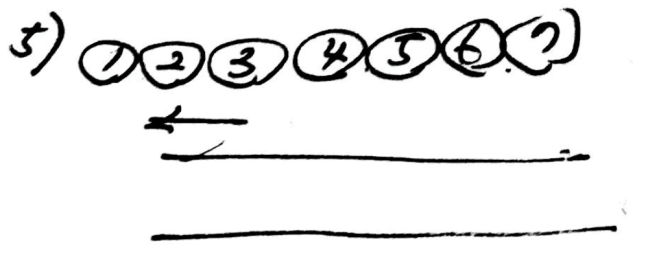 5) ① ② ③ ④ ⑤ ⑥ ⑦